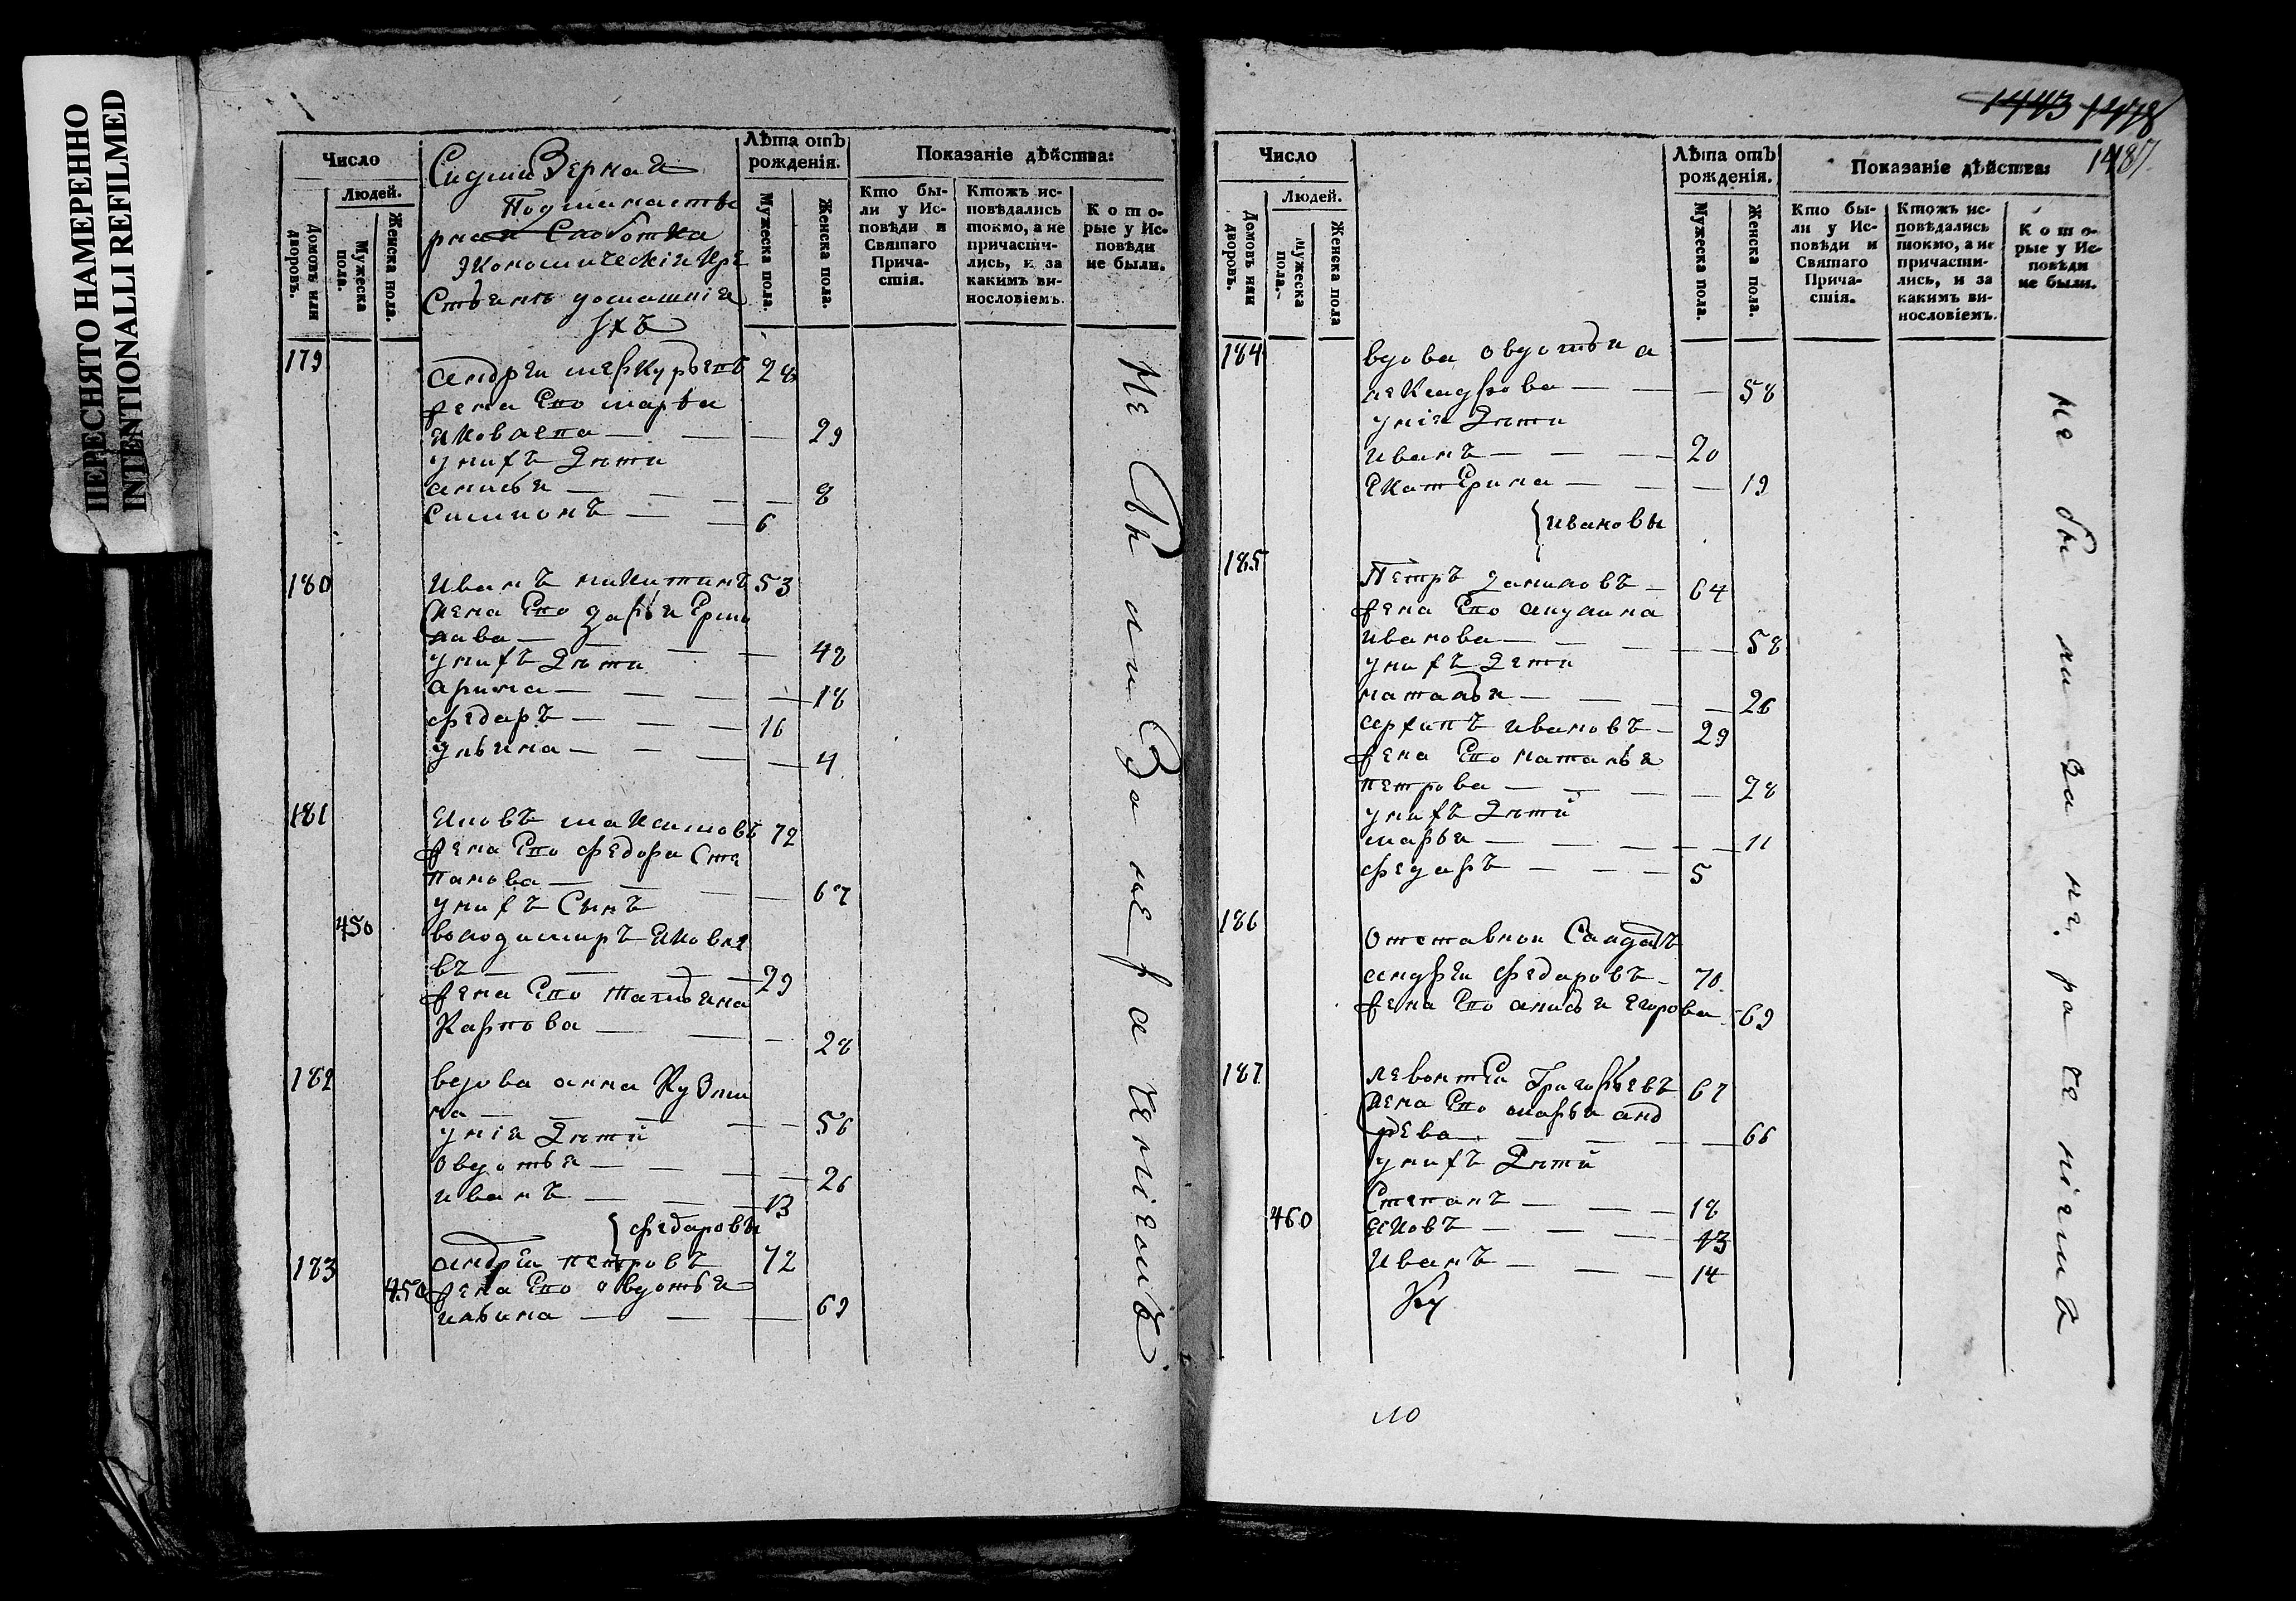 ПЕРЕСНЯТО НАМЕРЕННО
INTENTIONALLI REFILMED
Число
Людей.
Домовъ или дворовъ.
Мужеска пола.
Женска пола.
Подманасты
рная Слободка
экономическіи кре
стьяне домашніи
ихъ
Лѣта отъ рожденія.
Мужеска пола.
Женска пола.
Показаніе дѣйства:
Кто бы-
ли у Ис-
повѣди и
Святаго
Прича-
стія.
Ктожъ ис-
повѣдались
токмо, а не
причасти-
лись, и за
какимъ ви-
нословіемъ.
Кото-
рые у Ис-
повѣди
не были.
179
андреи меркурьевъ 28
жена Его марья
яковлева — 29
унихъ дѣти
анисья — 8
Симионъ — 6
180
иванъ никитинъ 53
жена Его дарья Ерми
лава — 48
унихъ дѣти
арина — 18
федаръ — 16
ульяна — 4
181
яковъ максимовъ 72
жена Его федора Сте
панова — 67
унихъ Сынъ
450
володимиръ яковле
въ — 29
жена Его татьяна
Карпова — 28
182
вдова анна Кузми
на — 56
унія дѣти
овдотья — 26
иванъ — 13
федаровы
183
андреи петровъ 72
450
жена Его овдотья
ильина — 69
не были За нерачениемъ
1443 1478
1487
Число
Людей.
Домовъ или дворовъ.
Мужеска пола.
Женска пола
Лѣта отъ рожденія.
Мужеска пола.
Женска пола.
Показаніе дѣйства:
Кто бы-
ли у Ис-
повѣди и
Святаго
Прича-
стія.
Ктожъ ис-
повѣдались
токмо, а не
причасти-
лись, и за
какимъ ви-
нословіемъ.
Кото-
рые у Ис-
повѣди
не были.
184
вдова овдотья а
лександрова — 58
унія дѣти
иванъ — 20
екатерина — 19
ивановы
185
Петръ даниловъ — 64
жена Его акулина
иванова — 58
унихъ дети
наталья — 26
архипъ ивановъ — 29
жена Его наталья
петрова — 28
унихъ дѣти
марья — 11
федаръ — 5
186
отставнои Салдатъ
андреи федаровъ — 70
жена Его анисья егорова — 69
187
левонтеи Григорьевъ 67
жена Его марья анд
рева — 66
унихъ дѣти
Степанъ — 18
460
яковъ — 13
иванъ — 14
не были за нерачениемъ